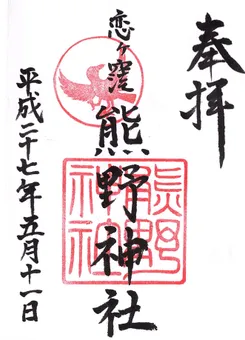 奉拝
恋ヶ窪熊野神社
熊野
神社
平成二十七年五月十一日